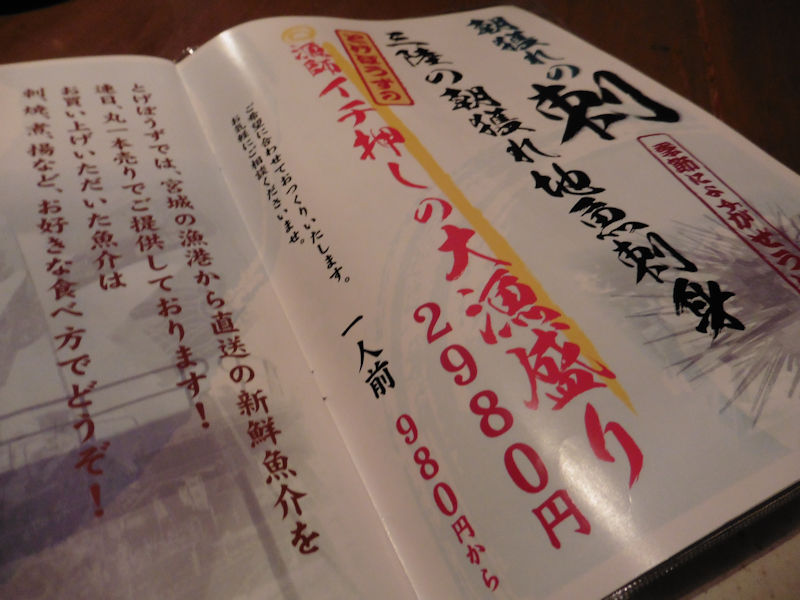 朝獲れの刺
季節によりかぜう
三陸の朝獲れ地魚刺身
とげぼうずの
漁師イチ押しの大漁盛り
2980円
ご希望に合わせておつくりいたします。
お気軽にご相談くださいませ。
一人前 980円から
とげぼうずでは、宮城の漁港から直送の新鮮魚介を
連日、丸一本売りでご提供しております!
お買い上げいただいた魚介は
刺、焼、煮、揚など、お好きな食べ方でどうぞ!